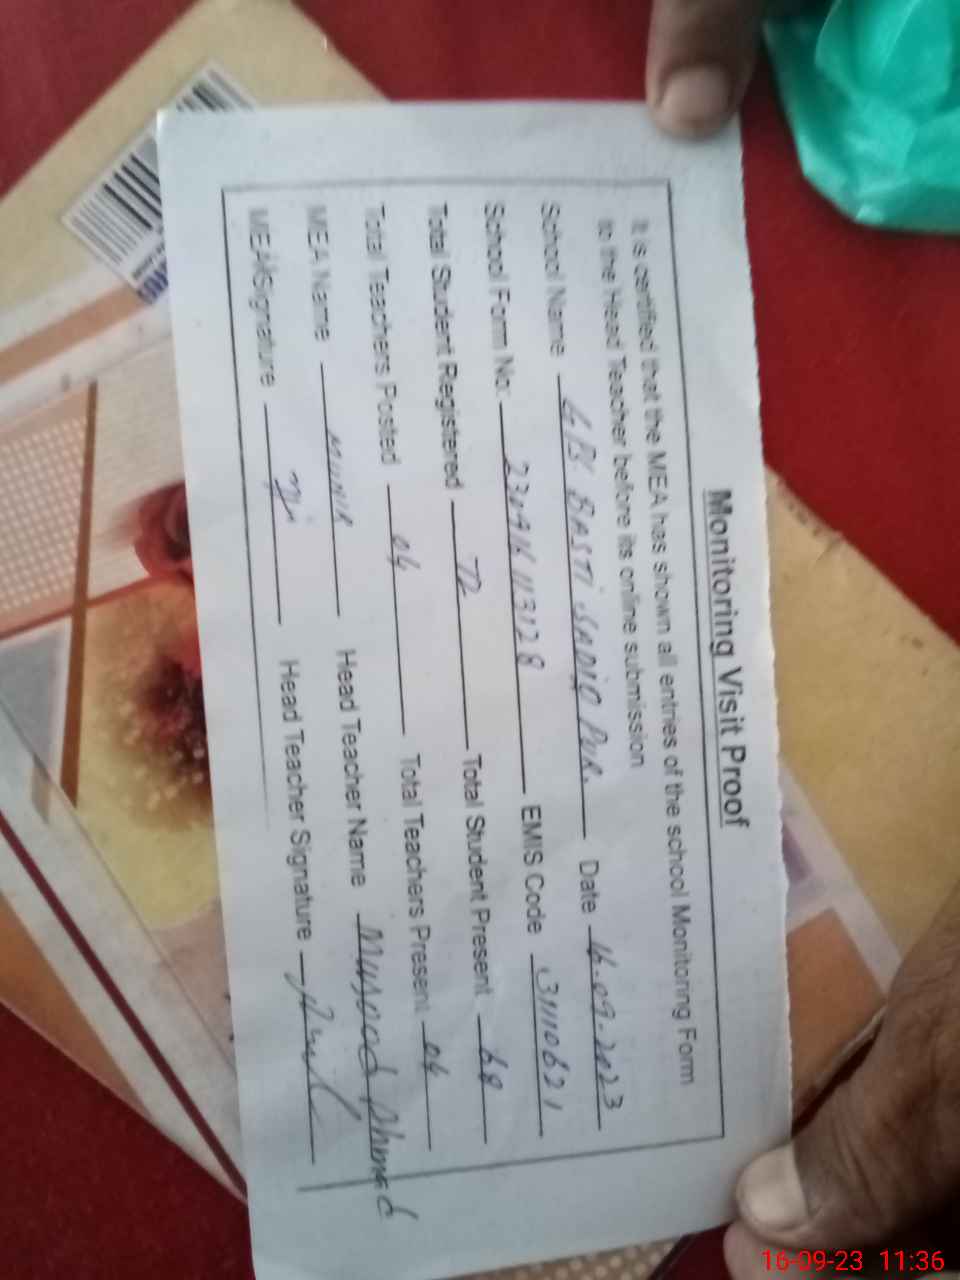 Monitoring Visit Proof
It is certified that the MEA has shown all entries of the school Monitoring Form
to the Head Teacher before its online submission
School Name GPS BASTI SADIQ PUR. Date 16.09.2023
School Form No: 230916113128 EMIS Code 31110621
Total Student Registered 72 Total Student Present 68
Total Teachers Posted 04 Total Teachers Present 04
MEA Name MUNIR Head Teacher Name Masood Ahmed
MEA Signature Head Teacher Signature
16-09-23 11:36